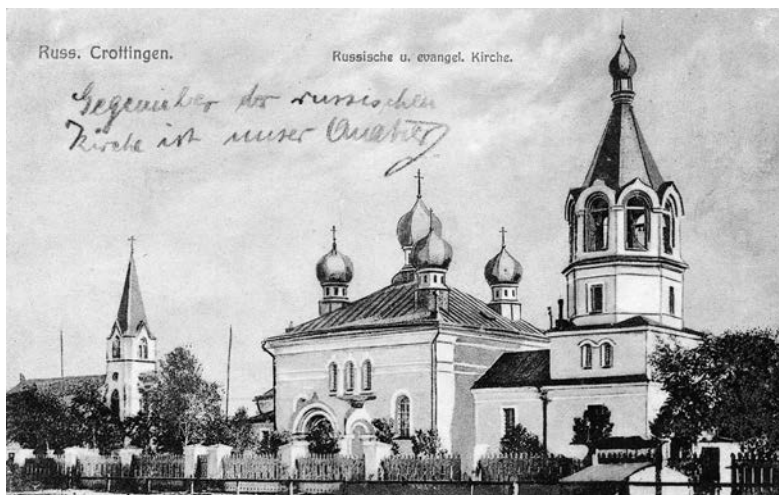 Russ. Crottingen.
Russische u. evangel. Kirche.
Gegenüber der russischen
Kirche ist unser Quatier